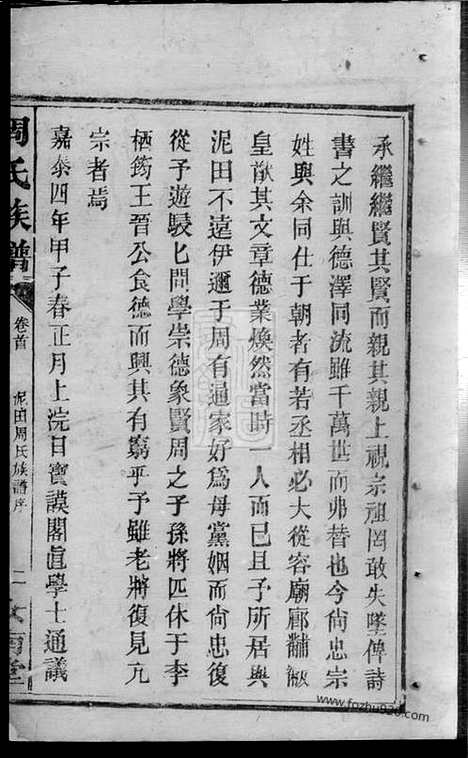 承繼繼賢其賢而親其親上視宗祖罔敢失墜俾詩
書之訓與德澤同流雖千萬世而弗替也今尙忠宗
姓與余同仕于朝者有若丞相必大從容廟廊黼黻
皇猷其文章德業煥然當時一人而已且予所居與
泥田不遠伊邇于周有通家好爲母黨姻而尙忠復
從予遊駸匕問學崇德象賢周之子孫將匹休于李
栖筠王晉公食德而興其有窮乎予雖老將復見亢
宗者焉
嘉泰四年甲子春正月上浣日寶謨閣直學士通議
周氏族譜
卷首
泥田周氏族譜序
二
www.fozhu920.com